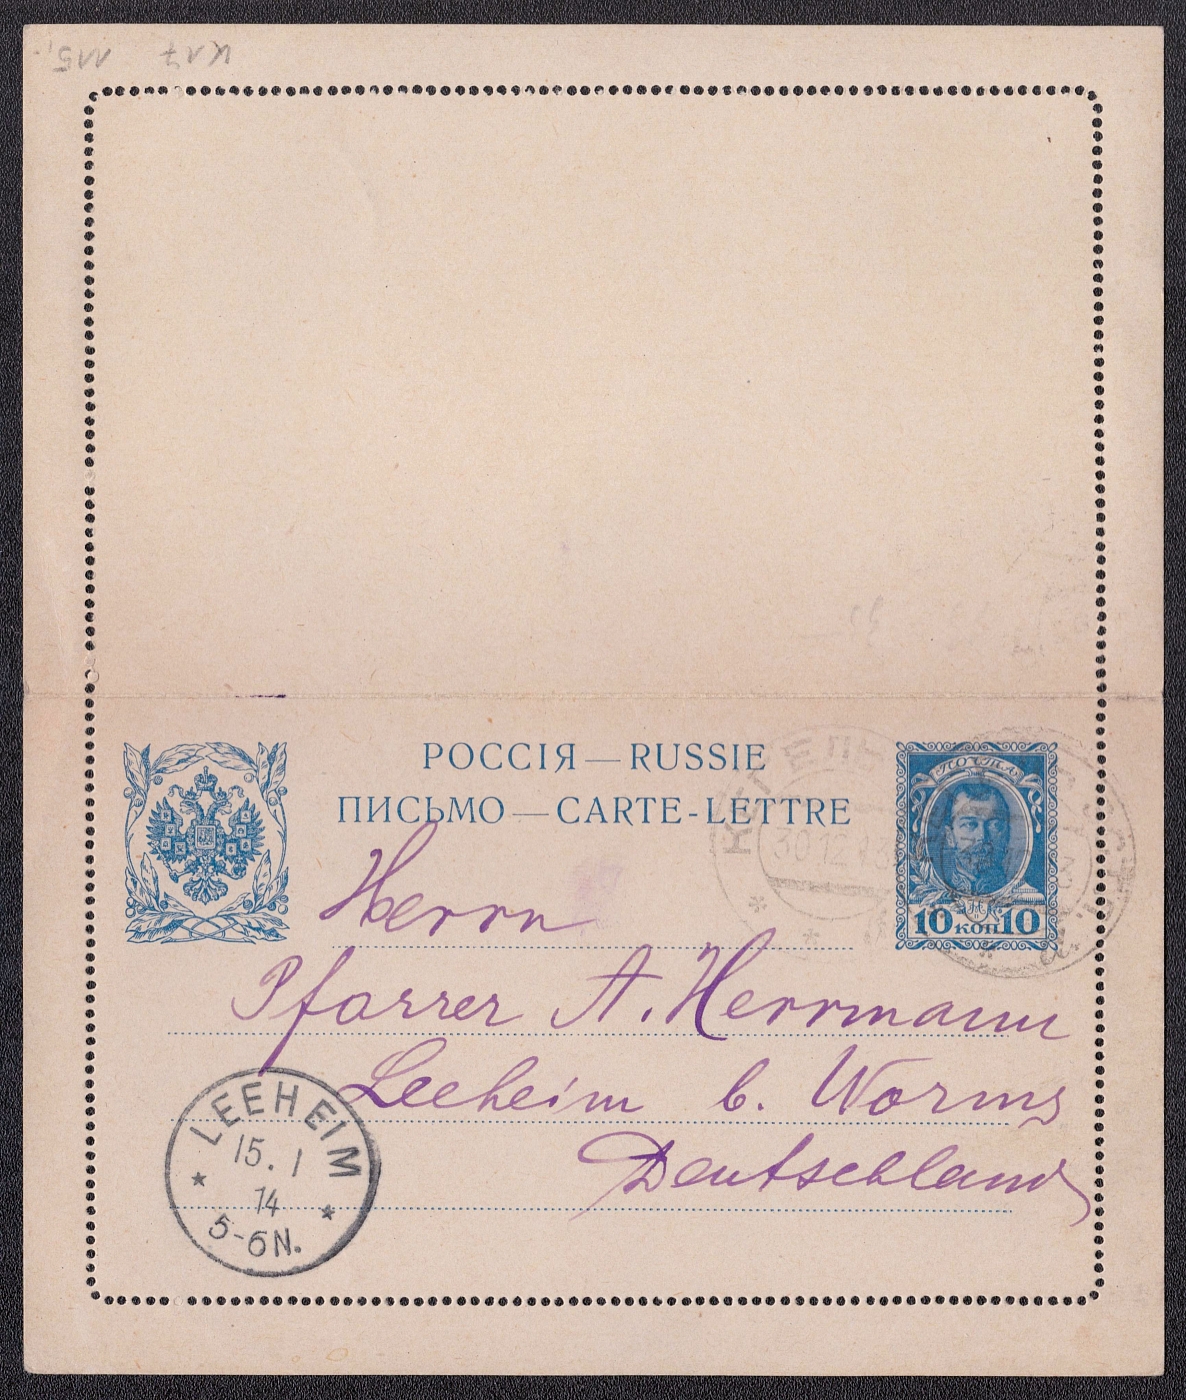 K17 115,-
РОССІЯ — RUSSIE
ПИСЬМО — CARTE-LETTRE
ПОЧТА
10 КОП 10
30 12
Herrn
Pfarrer A. Herrmann
Leeheim b. Worms
Deutschland
LEEHEIM
15. 1
14
5-6N.